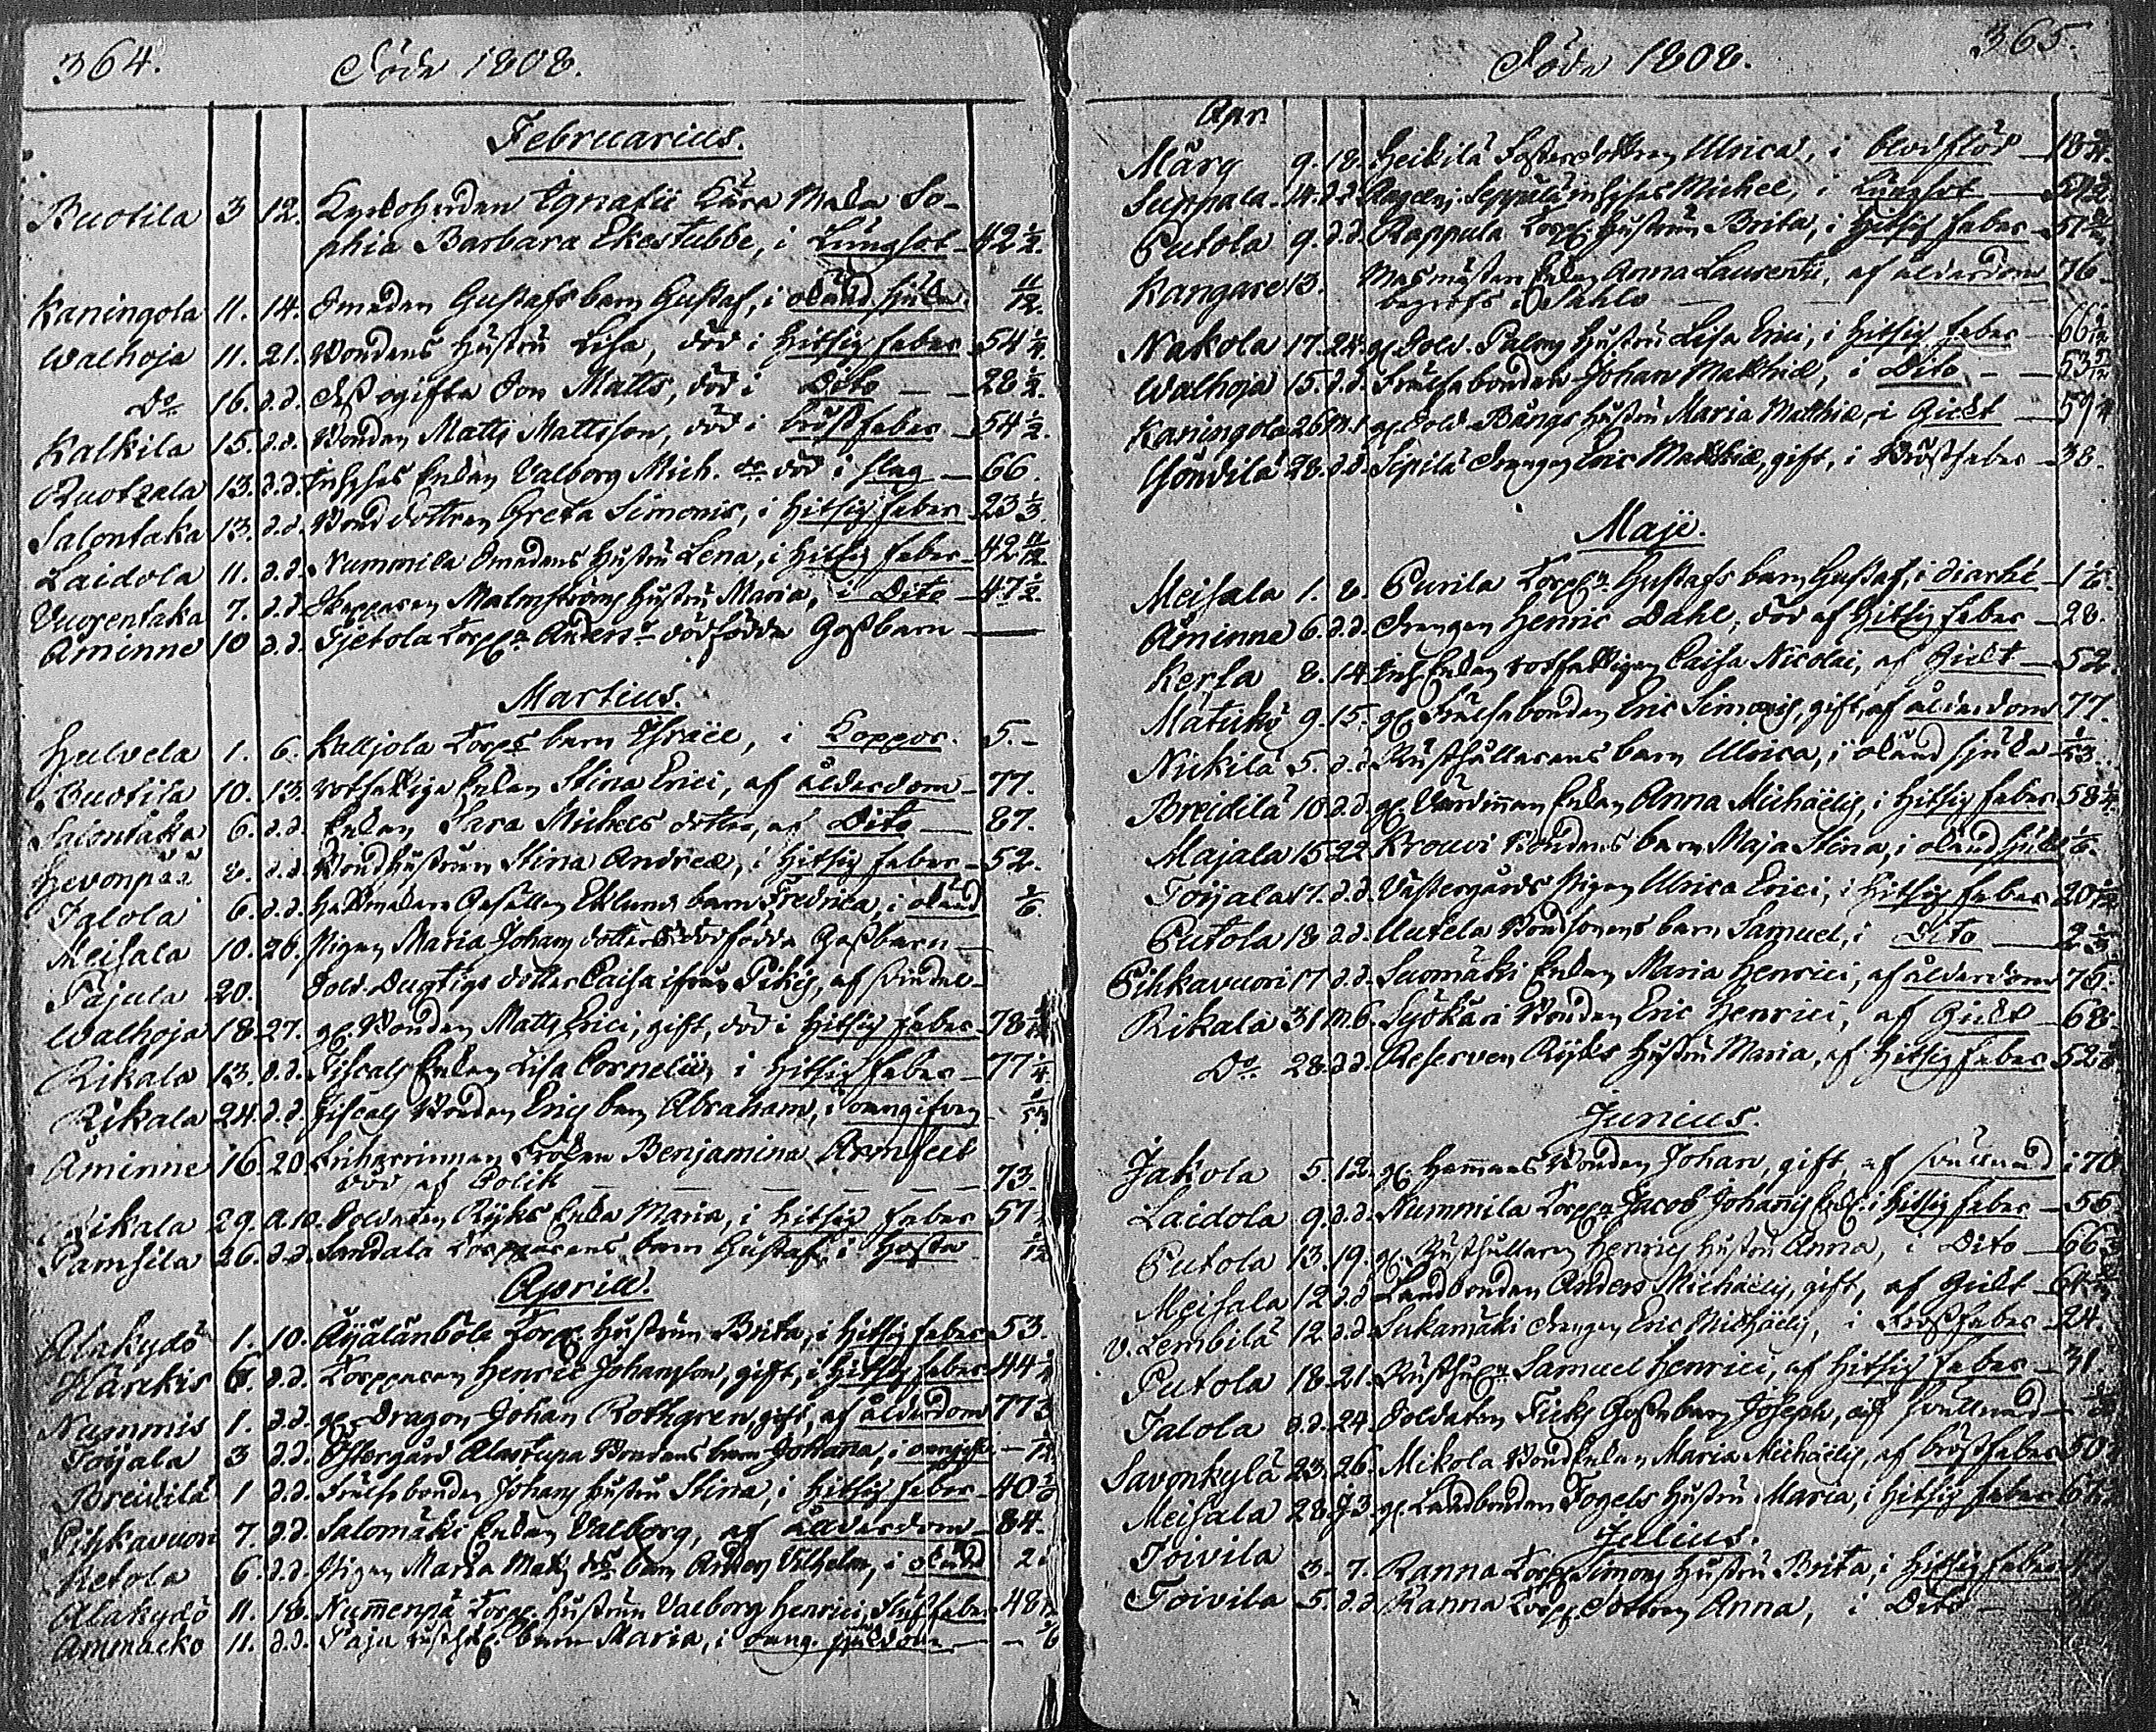 364.
Döde 1808.
Februarius.
Buotila 3 12. Kyrkoherden Ignatii Kära Maka So-
phia Barbara Ekestubbe, i Lungsot 42 1/2.
Kaningola 11. 14. Smeden Gustafs barn Gustaf, i okänd sjuka 11/12.
Walhoja 11. 21. Bondens Hustru Lisa, död i Hitsig feber 54 1/4.
Do 16. d.d. ogifta Son Matts, död i Dito 28 1/2.
Kalkila 15. d.d. Bonden Matts Mattsson, död i bröstfeber 54 1/2.
Ruotzala 13. d.d. Inhyses Enkan Valborg Mich. dr död i slag 66.
Salontaka 13. d.d. Bonddottren Greta Simonis, i Hitsig feber 23 1/3
Laidola 11. d.d. Nummila Smedens Hustru Lena, i Hitsig feber 42 11/12.
Vuorentaka 7. d.d. Malmströms Hustru Maria, i Dito 47 1/2.
Åminne 10 d.d. Tjetola Torp. Anders dödfödde Gossbarn
Martius.
Hulvela 1. 6. Kalljola Torps barn Israel, i Koppor. 5.
Buotila 10. 13. rotfattiga Enkan Stina Erici, af ålderdom 77.
Salontaka 6. d.d. Enkan Sara Michels dotter, af Dito 87.
Hevonpää 8. d.d. Bondhustrun Stina Andreæ, i Hitsig feber 52.
Jalola 6. d.d. Hattmakare Gesällen Eklunds barn Fredrica, i okänd 1/6.
Meisala 10. 20. Pigan Maria Johans dotters dödfödde Gossbarn
Pajula 20. Sold. Dugtigs dotter Caisa ifrån Pikis, af
Walhoja 18 27. gl. Bonden Matts Erici, gift, död i Hitsig feber 78
Rikala 13. d.d. Fiscals Enkan Lisa Cornelii, i Hitsig feber 77 1/4.
Rikala 24. d.d. Fiscals Bonden Erics barn Abraham, i oangifven
Åminne 16. 20. Friherrinnan Fröken Benjamina Armfelt
död af Colik 73.
Rikala 29. A.10. Soldaten Ryks Enka Maria, i Hitsig feber 57
Pamsila 26. d.d. Sandala Torpparens barn Gustaf, i Hosta 1/12
Aprill.
Alakydö 1. 10. Äyälänböle Torp. Hustrun Brita, i Hitsig feber 53.
Härckis 6. d.d. Torpparen Henric Johansson, gift, i Hitsig feber 44
Nummis 1. d.d. gl. Dragon Johan Rothgren, gift, af ålderdom 77
Toijala 3 d.d. Östergård Alastupa Bondens barn Johanna, i 1/12
Breidilä 1 d.d. Frälsebonden Johans hustru Stina, i Hitsig feber 40
Pihkavuori 7. d.d. Salomäki Enkan Valborg, af ålderdom 84.
Ketola 6. d.d. Pigan Maria Mats dr barn Anders Vilhelm, i okänd 2.
Alakydö 11. 18. Nummenpä Torp. Hustrun Valborg Henrici, feber 48
Ammacko 11. d.d. Paja barn Maria, i oang. sjukdom 1/6
365.
Döde 1808.
Apr.
Märy 9. 18. Heikilä Fosterdottren Ulrica, i blodflöd 18
Suppala 14. d.d. Seppälä inhyses Michel, i Lungsot
Putola 9. d.d. Rappula Torp. Hustrun Brita, i Hitsig feber 51
Kangare 13. Enkan Anna Laurentii, af ålderdom 76
begrofs i Sahlo
Nakola 17. 24. gl. Sold. Palms Hustru Lisa Erici, i Hitsig feber 66
Walhoja 15. d.d. Frälsebonden Johan Matthiæ, i Dito 53
Kaningola 26 M.1. gl. Sold. Bångs Hustru Maria Matthiæ, i Gickt 59
Yöndilä 28. d.d. Sipilä drengen Eric Matthiæ, gift, i Bröstfeber 38.
Maji.
Meisala 1. 8. Purila Torp. Gustafs barn Gustaf, i diarhé 1 1/6.
Åminne 6. d.d. drengen Henric Dahl, död af Hitsig feber 28.
Kerla 8. 14. Inh. Enkan rotfattigen Caisa Nicolai, af Gickt 52.
Mätukö 9. 15. gl. Frälsebonden Eric Simonis, gift, af ålderdom 77.
Nickilä 5. d.d. Rusthållarens barn Ulrica, i okänd sjuka
Breidilä 10 d.d. gl. Enkan Anna Michaelis, i Hitsig feber 58 1/4.
Majala 15 22 Krouvi Bondens barn Maja Stina, i okänd sjuka 1/6.
Toijala 17. d.d. Västergårds Pigan Ulrica Erici, i Hitsig feber 20
Putola 18 d.d. Uutela Bondsonens barn Samuel, i Dito 2 1/3
Pihkavuori 17 d.d. Suomäki Enkan Maria Henrici, af ålderdom 76.
Rikala 31 M.6. Syökäri Bonden Eric Henrici, af Gickt 68
Do 28. d.d. Reserven Ryks Hustru Maria, af Hitsig feber 52
Junius.
Jakola 5. 12. gl. Bonden Johan, gift, af svullnad i 70
Laidola 9. d.d. Nummila Torp. Jacob Johannis Enk. i Hitsig feber 56.
Putola 13. 19. gl. Rusthållaren Henrics Hustru Anna, i Dito 66
Meisala 12 d.d. Landbonden Anders Michaelis, gift, af Gickt
V. Lembilä 12 d.d. Sukamäki drengen Eric Michaelis, i Bröstfeber 24.
Putola 18. 21. Samuel Henrici, af Hitsig feber 31.
Jalola d.d. 24 Soldaten Ficks Gossebarn Joseph, af svullnad
Savonkylä 23. 26. Mikola Bondenkan Maria Michaelis, af bröstfeber 50
Meisala 28. J 3. gl. Landbonden Fogels Hustru Maria, i Hitsig feber
Julius.
Toivila 3. 7. Ranna Torp. Simons Hustru Brita, i Hitsig feber
Toivila 5. d.d. Ranna Torp. Dottren Anna, i Dito